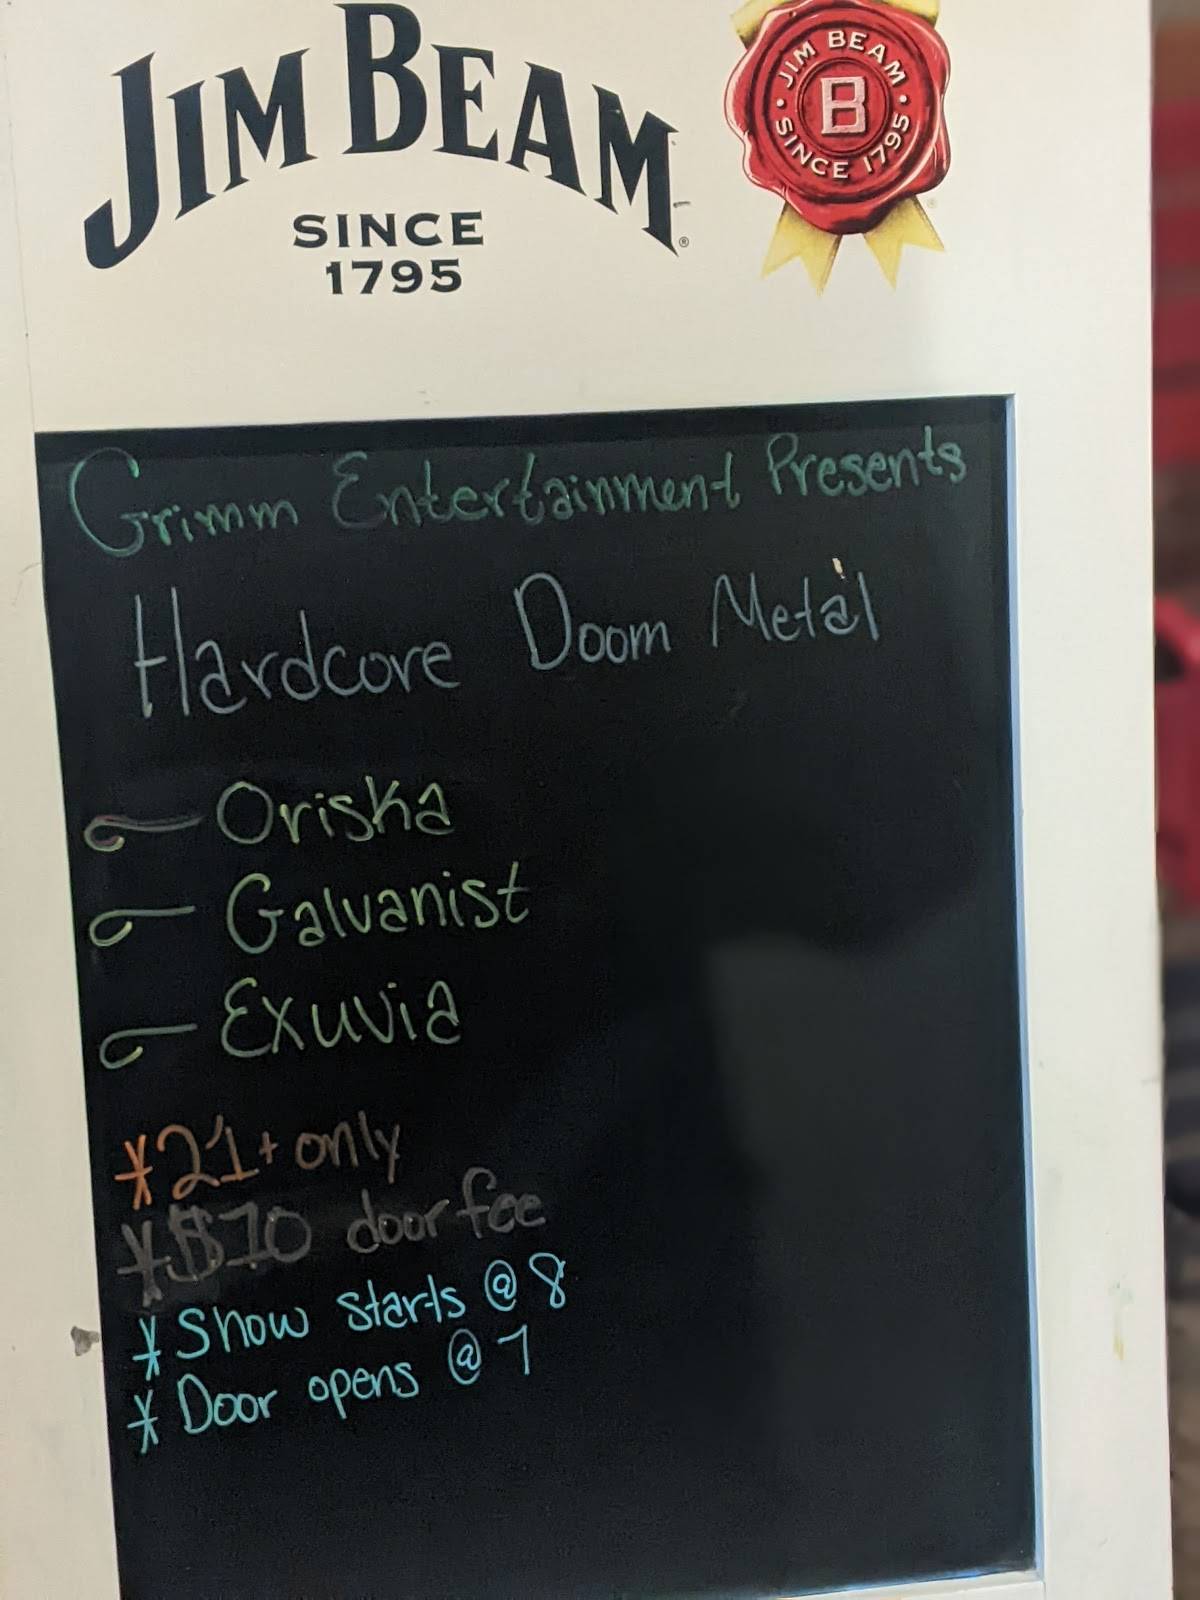 JIM BEAM
SINCE
1795
JIM BEAM
B
SINCE 1795
Grimm Entertainment Presents
Hardcore Doom Metal
Oriska
Galvanist
Exuvia
*21+ only
*$10 door fee
*Show starts @ 8
*Door opens @ 7